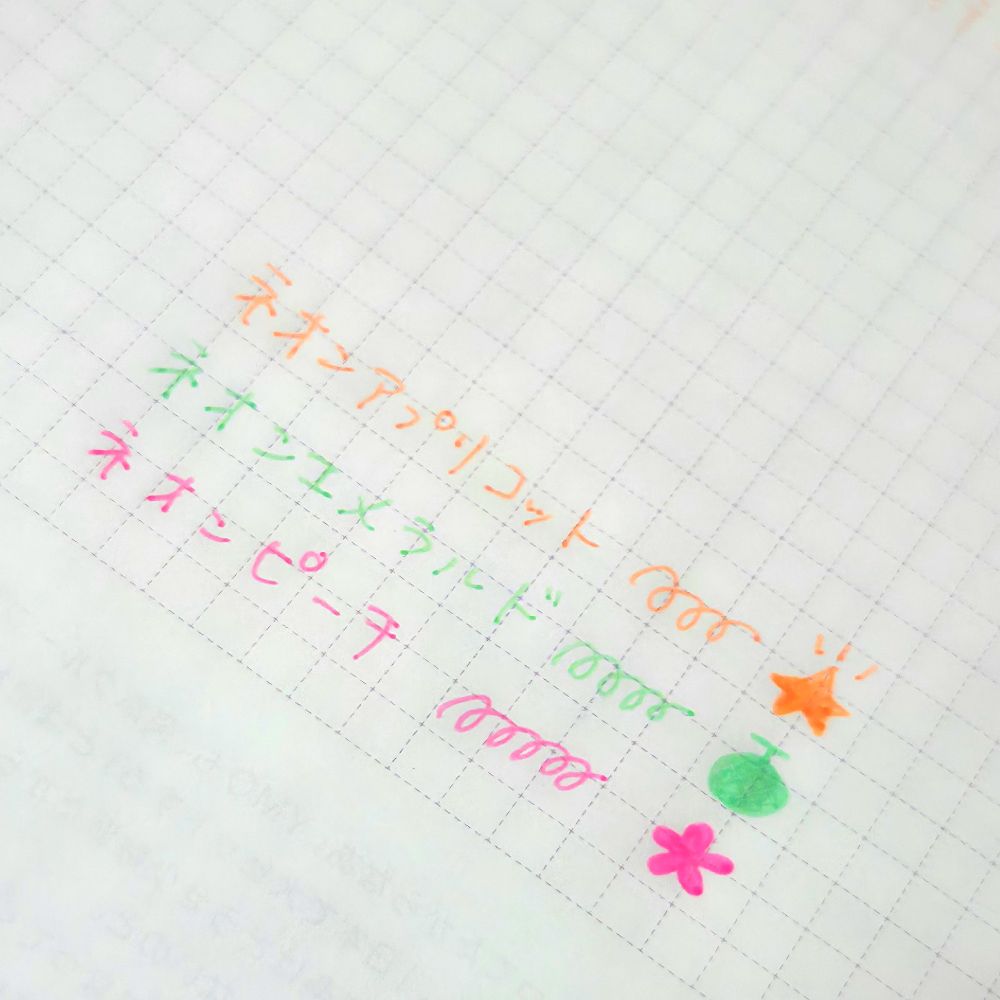 ネオンアプリコット
ネオンエメラルド
ネオンピーチ